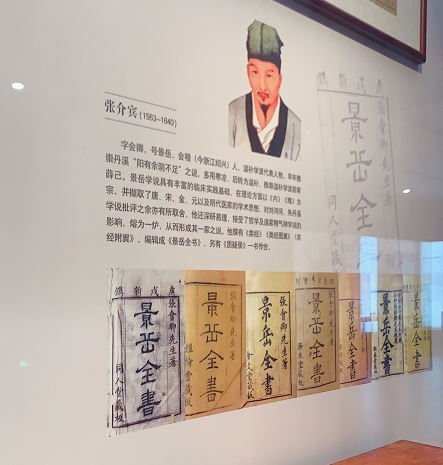 张介宾(1563~1640)
字会卿，号景岳，会稽（今浙江绍兴）人，温补学派代表人物，早年推
崇丹溪“阳有余阴不足”之说，多用寒凉，后转为温补，推崇温补学派前辈
薛己，景岳学说具有丰富的临床实践基础，在理论方面以《内》《难》为
宗，并撷取了唐、宋、金、元以及明代医家的学术思想，对刘河间、朱丹溪
学说批评之余亦有所取舍，他还深研易理，接受了哲学及道家精气神学说的
影响，熔为一炉，从而形成其一家之说。他撰有《类经》《类经图翼》《类
经附翼》，编辑成《景岳全书》，另有《质疑录》一书传世。
張會卿先生著
景岳全書
歲戌新鐫
張會卿先生著
景岳全書
同人堂藏板
張會卿先生著
景岳全書
張會卿先生著
景岳全書
會文堂藏板
張會卿先生著
景岳全書
藜永堂藏板
景岳全書
景岳全書
景岳全書